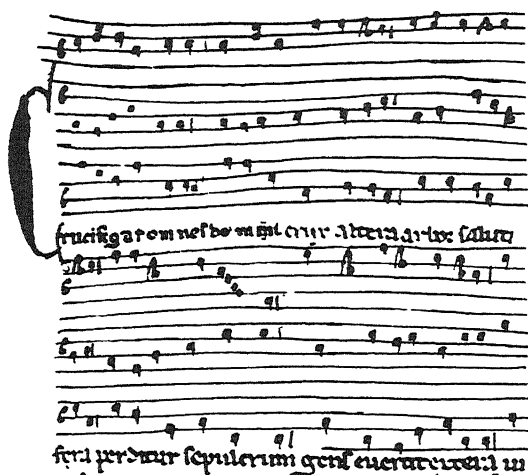 Crucifigat omnes domini crux altera arbor saluti
fera perditur sepulcrum gens evertit extera vi